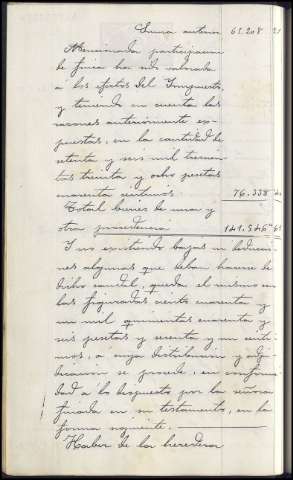 Suma anterior 65.208 21
Mencionada participacion
de finca ha sido valorada
a los efectos del Impuesto,
y teniendo en cuenta las
razones anteriormente ex-
puestas, en la cantidad de
setenta y seis mil trescien-
tas treinta y ocho pesetas
cuarenta centimos. 76.338 40
Total bienes de una y
otra procedencia 141.546 61
Y no existiendo bajas ni deduccio-
nes algunas que deban hacerse de
dicho caudal, queda el mismo en
las figuradas ciento cuarenta y
un mil quinientas cuarenta y
seis pesetas y sesenta y un centi-
mos, a cuya distribucion y adju-
dicacion se procede, en conformi-
dad a lo dispuesto por la señora
finada en su testamento, en la
forma siguiente.
Haber de los herederos